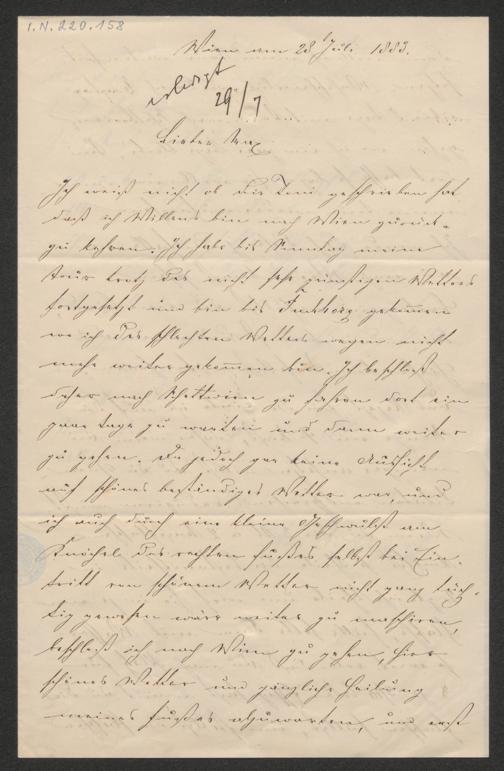 I.N. 220.158
Wien am 28 Juli 1883.
erledigt
29/7
Lieber Max
Ich weiß nicht ob dir Toni geschrieben hat
daß ich Willens bin nach Wien zurück-
zu kehren. Ich habe bis Sonntag meine
Tour trotz des nicht sehr günstigen Wetters
fortgesetzt und bin bis gekommen
wo ich des schlechten Wetters wegen nicht
mehr weiter gekommen bin. Ich beschloß
daher nach Schottwien zu fahren dort ein
paar Tage zu warten und dann weiter
zu gehen. Da jedoch gar keine Aussicht
auf schönes beständiges Wetter war, und
ich auch durch eine kleine Geschwulst am
Knöchel des rechten Fußes selbst bei Ein-
tritt von schönem Wetter nicht ganz tüch-
tig gewesen wäre weiter zu maschieren,
beschloß ich nach Wien zu gehen, hier
schönes Wetter und gänzliche Heilung
meines Fußes abzuwarten, und erst